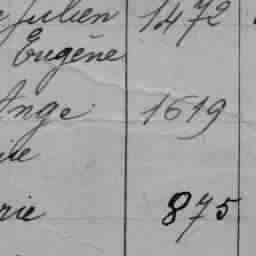 Julien 1472
Eugène
Ange 1619
875